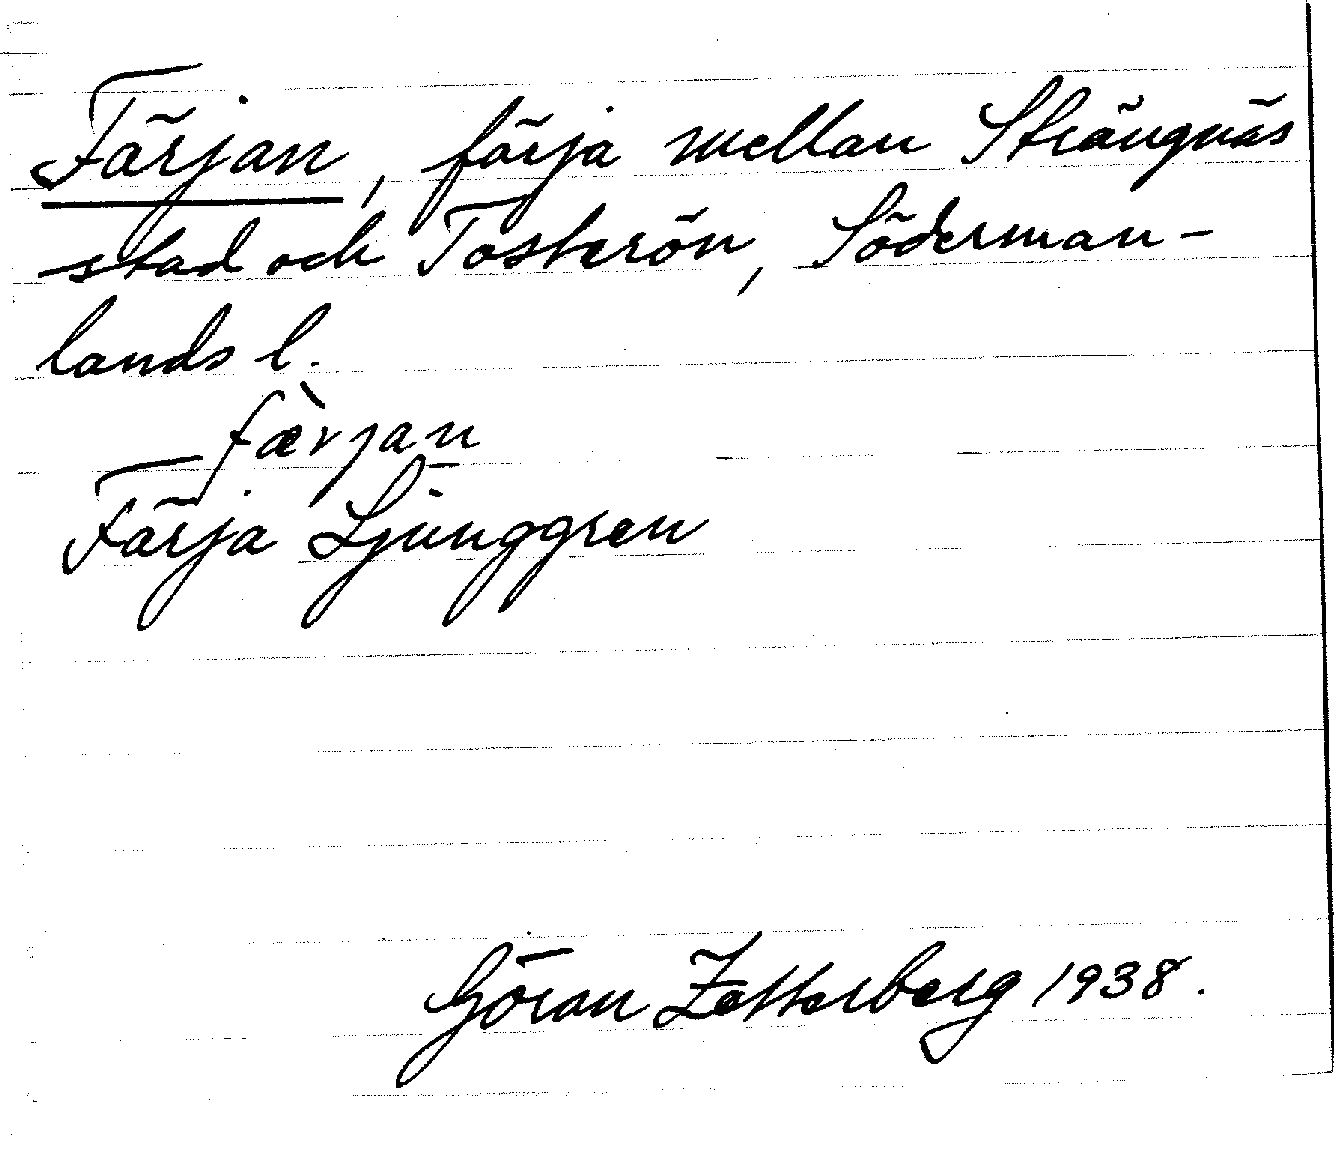 Färjan, färja mellan Strängnäs
stad och Tosterön, Söderman-
lands l.
fæ̀rjan
Färja Ljunggren
Göran Zetterberg 1938.